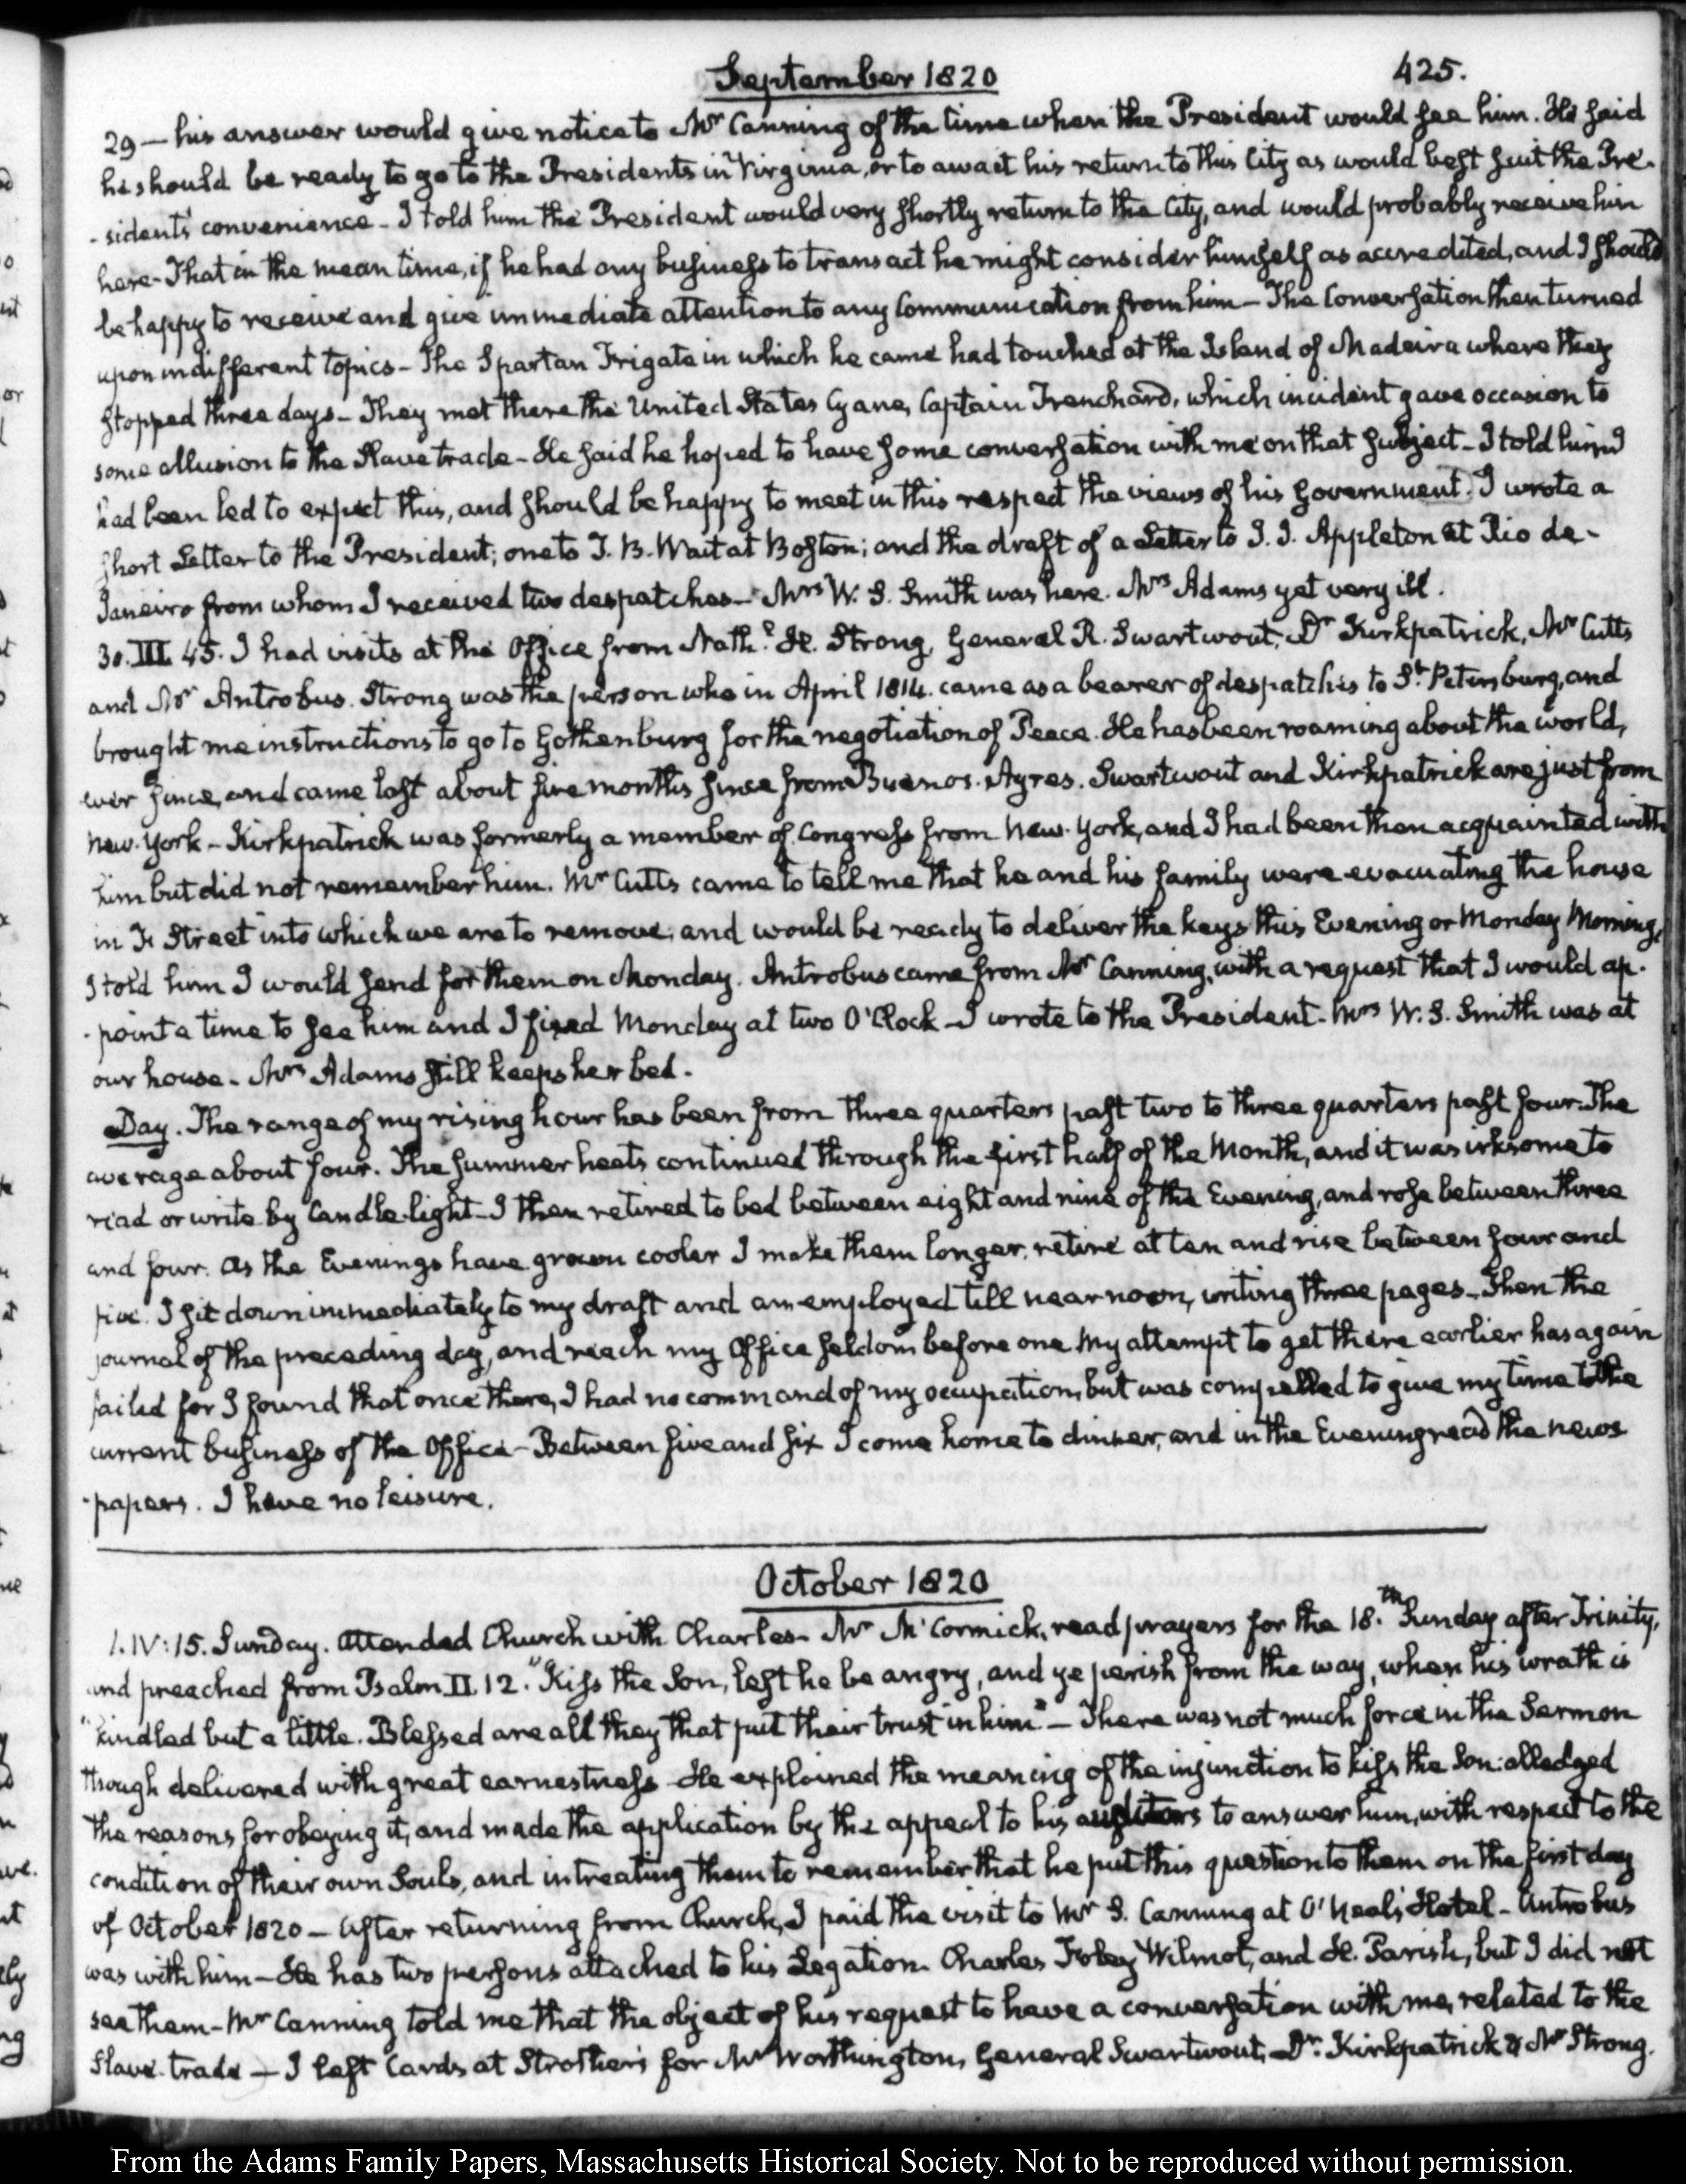 September 1820
425.
29 — his answer would give notice to Mr Canning of the time when the President would see him. He said
he should be ready to go to the Presidents in Virginia, or to await his return to this City as would best suit the Pre-
-sidents' convenience - I told him the President would very shortly return to the City, and would probably receive him
here - That in the mean time, if he had any business to transact he might consider himself as accredited, and I should
be happy to receive and give immediate attention to any Communication from him - The Conversation then turned
upon indifferent topics - The Spartan Frigate in which he came had touched at the Island of Madeira where they
stopped three days - They met there the United States Cyane, Captain Trenchard, which incident gave occasion to
some allusion to the Slave trade - He said he hoped to have some conversation with me on that subject - I told him I
had been led to expect this, and should be happy to meet in this respect the views of his Government. I wrote a
short Letter to the President; one to T. B. Wait at Boston; and the draft of a Letter to J. J. Appleton at Rio de-
Janeiro from whom I received two despatches - Mrs W. S. Smith was here. Mrs Adams yet very ill.
30. III. 45. I had visits at the Office from Nathl. H. Strong, General R. Swartwout, Dr Kirkpatrick, Mr Cutts
and Mr Antrobus. Strong was the person who in April 1814. came as a bearer of despatches to St. Petersburg, and
brought me instructions to go to Gothenburg for the negotiation of Peace. He has been roaming about the world,
ever since, and came last about five months since from Buenos-Ayres. Swartwout and Kirkpatrick are just from
New-York - Kirkpatrick was formerly a member of Congress from New-York, and I had been then acquainted with
him but did not remember him. Mr Cutts came to tell me that he and his family were evacuating the house
in F. Street into which we are to remove, and would be ready to deliver the keys this Evening or Monday Morning,
I told him I would send for them on Monday. Antrobus came from Mr Canning, with a request that I would ap-
-point a time to see him and I fixed Monday at two O'Clock - I wrote to the President - Mrs W. S. Smith was at
our house - Mrs Adams still keeps her bed.
Day. The range of my rising hour has been from three quarters past two to three quarters past four. The
average about four. The summer heats continued through the first half of the Month, and it was irksome to
read or write by Candle-light - I then retired to bed between eight and nine of the Evening, and rose between three
and four. As the Evenings have grown cooler I make them longer, retire at ten and rise between four and
five. I sit down immediately to my draft and am employed till near noon, writing three pages - Then the
journal of the preceding day, and reach my Office seldom before one My attempt to get there earlier has again
failed for I found that once there, I had no command of my occupations, but was compelled to give my time to the
current business of the Office - Between five and six I come home to dinner, and in the Evening read the news
-papers. I have no leisure.
October 1820
1. IV: 15. Sunday. Attended Church with Charles - Mr McCormick, read prayers for the 18.th Sunday after Trinity,
and preached from Psalm II. 12. "Kiss the Son, lest he be angry, and ye perish from the way, when his wrath is
"kindled but a little. Blessed are all they that put their trust in him" - There was not much force in the Sermon
though delivered with great earnestness - He explained the meaning of the injunction to kiss the Son: alledged
the reasons for obeying it, and made the application by the appeal to his auditors to answer him, with respect to the
condition of their own Souls, and intreating them to remember that he put this question to them on the first day
of October 1820 - After returning from Church, I paid the visit to Mr S. Canning at O'Neal's Hotel - Antrobus
was with him - He has two persons attached to his Legation - Charles Wilmot, and H. Parish, but I did not
see them - Mr Canning told me that the object of his request to have a conversation with me, related to the
Slave-trade - I left Cards at Strother's for Mr Worthington, General Swartwout, Dr. Kirkpatrick & Mr Strong.
From the Adams Family Papers, Massachusetts Historical Society. Not to be reproduced without permission.